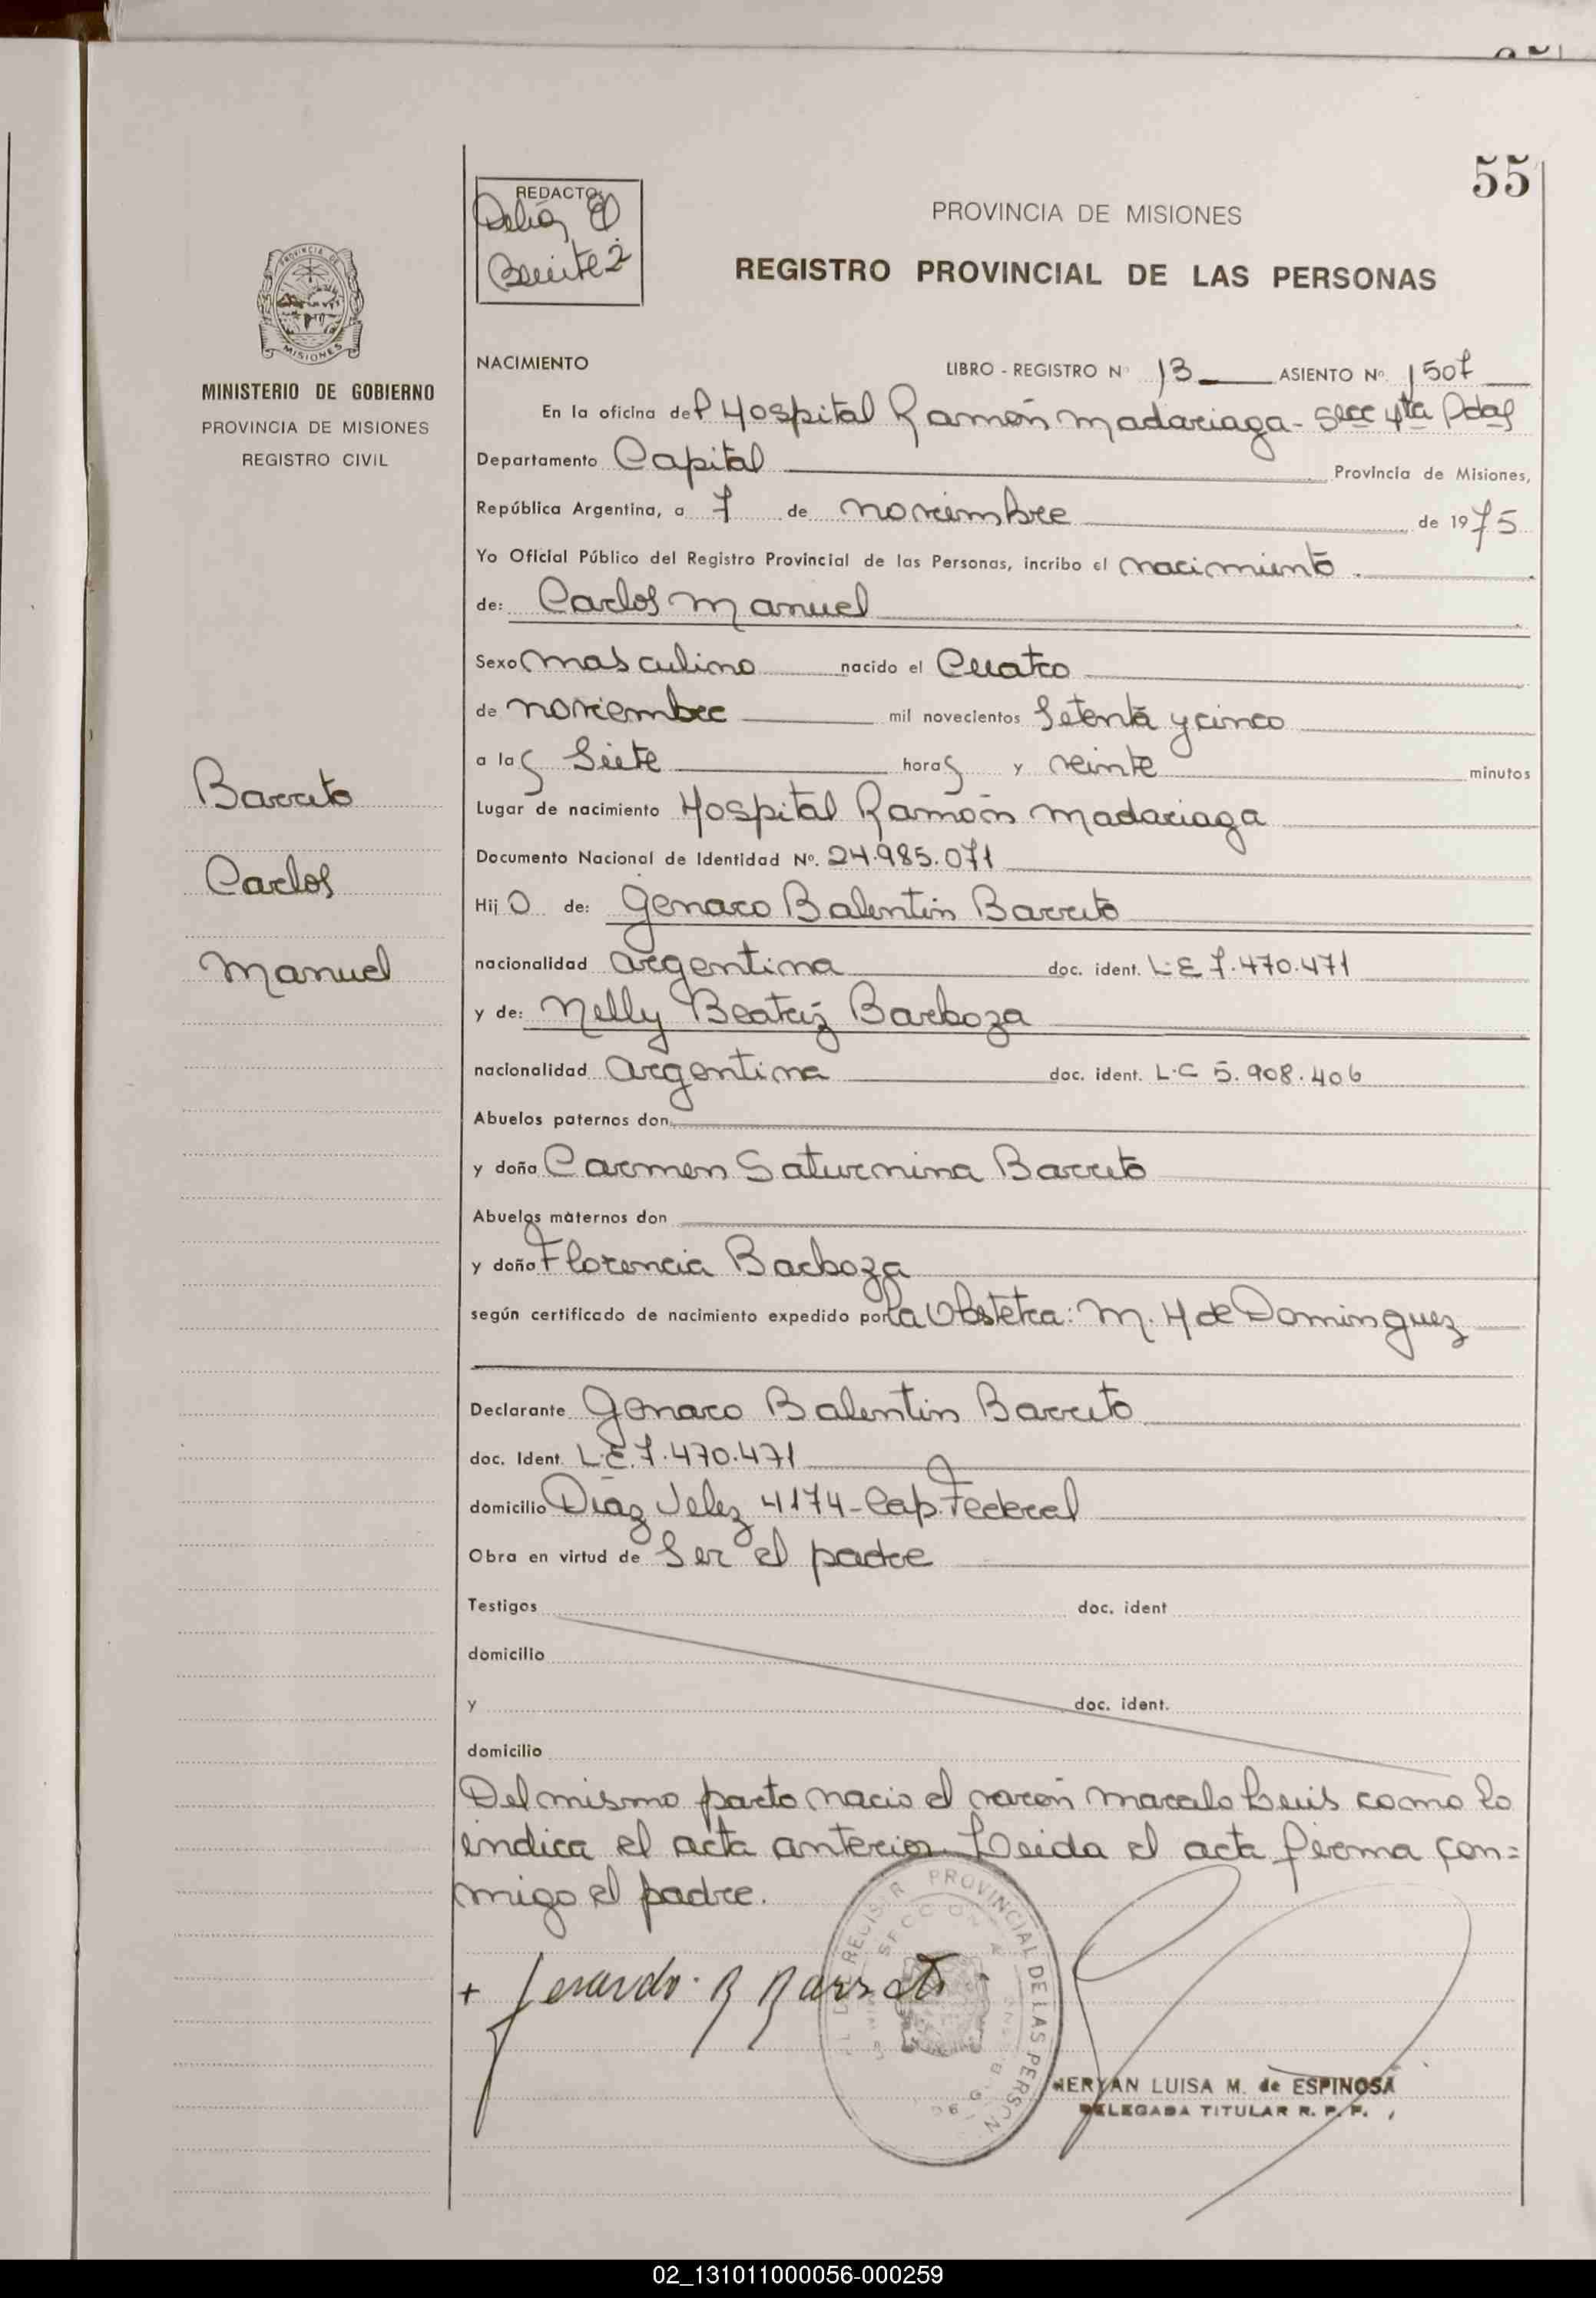 55
REDACTO:
Delia E
Benitez
PROVINCIA DE MISIONES
REGISTRO PROVINCIAL DE LAS PERSONAS
PROVINCIA DE
MISIONES
MINISTERIO DE GOBIERNO
PROVINCIA DE MISIONES
REGISTRO CIVIL
NACIMIENTO LIBRO - REGISTRO Nº 13 ASIENTO Nº 1507
En la oficina del Hospital Ramón Madariaga - Secc 4ta Pdas
Departamento Capital Provincia de Misiones,
República Argentina, a 7 de noviembre de 1975
Yo Oficial Público del Registro Provincial de las Personas, incribo el nacimiento
de: Carlos Manuel
Sexo masculino nacido el Cuatro
de noviembre mil novecientos Setenta y cinco
a las Siete horas y veinte minutos
Barreto
Carlos
Manuel
Lugar de nacimiento Hospital Ramón Madariaga
Documento Nacional de Identidad Nº. 24.985.071
Hijo de: Genaro Balentin Barreto
nacionalidad argentina doc. ident. L.E 7.470.471
y de: Nelly Beatriz Barboza
nacionalidad argentina doc. ident. L.C 5.908.406
Abuelos paternos don
y doña Carmen Saturnina Barreto
Abuelos maternos don
y doña Florencia Barboza
según certificado de nacimiento expedido por la Obstetra: M. H de Dominguez
Declarante Genaro Balentin Barreto
doc. Ident. L.E. 7.470.471
domicilio Diaz Velez 4174 - Cap. Federal
Obra en virtud de Ser el padre
Testigos doc. ident
domicilio
y doc. ident.
domicilio
Del mismo parto nacio el varón Marcelo Luis como lo
indica el acta anterior. Leida el acta firma con=
migo el padre.
+ B Barreto
PROVINCIAL DE LAS PERSON
NERYAN LUISA M. de ESPINOSA
DELEGADA TITULAR R. P. P.
02_131011000056-000259